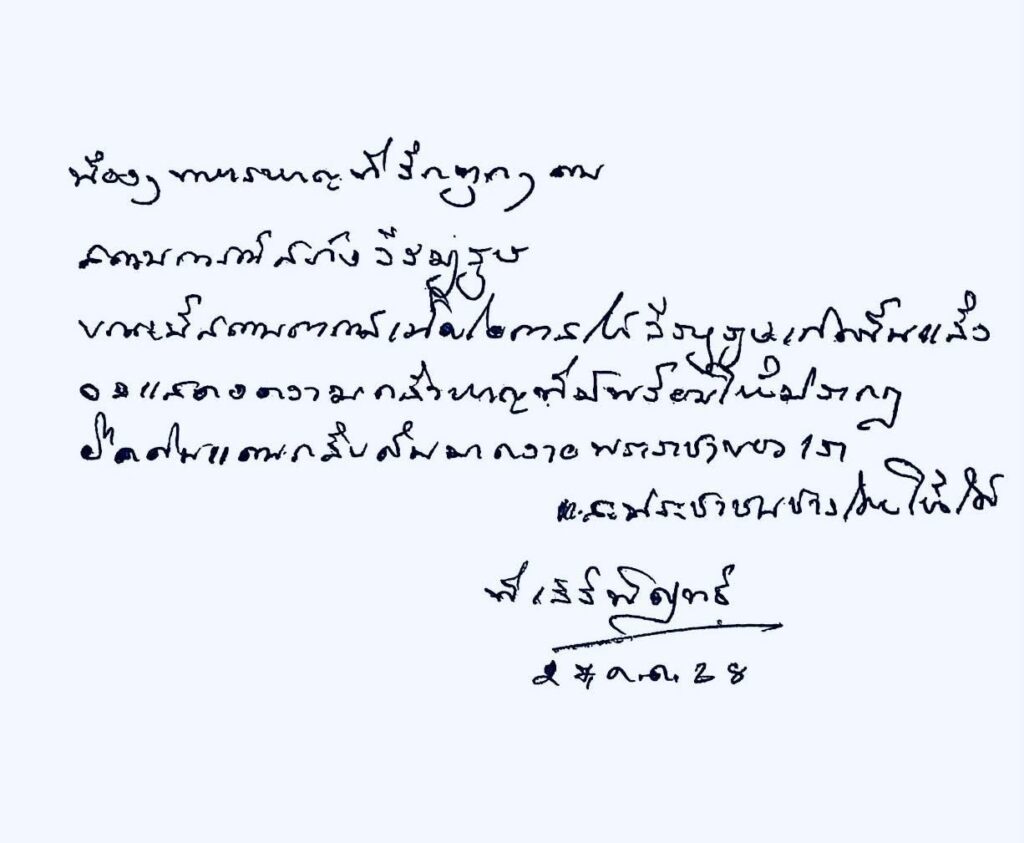 น้องๆ ทหารหาญที่รักทุกๆ คน
สถานการณ์สร้างวีรบุรุษ
ขณะนี้สถานการณ์เปิดโอกาสให้วีรบุรุษเกิดขึ้นแล้ว
จงแสดงความกล้าหาญที่มีพร้อมให้ปรากฏ
ดินแดนกลับคืนมาถวาย พระราชาของเรา
และประชาชนชาวไทยให้ได้
พี่
ต.ค. 28